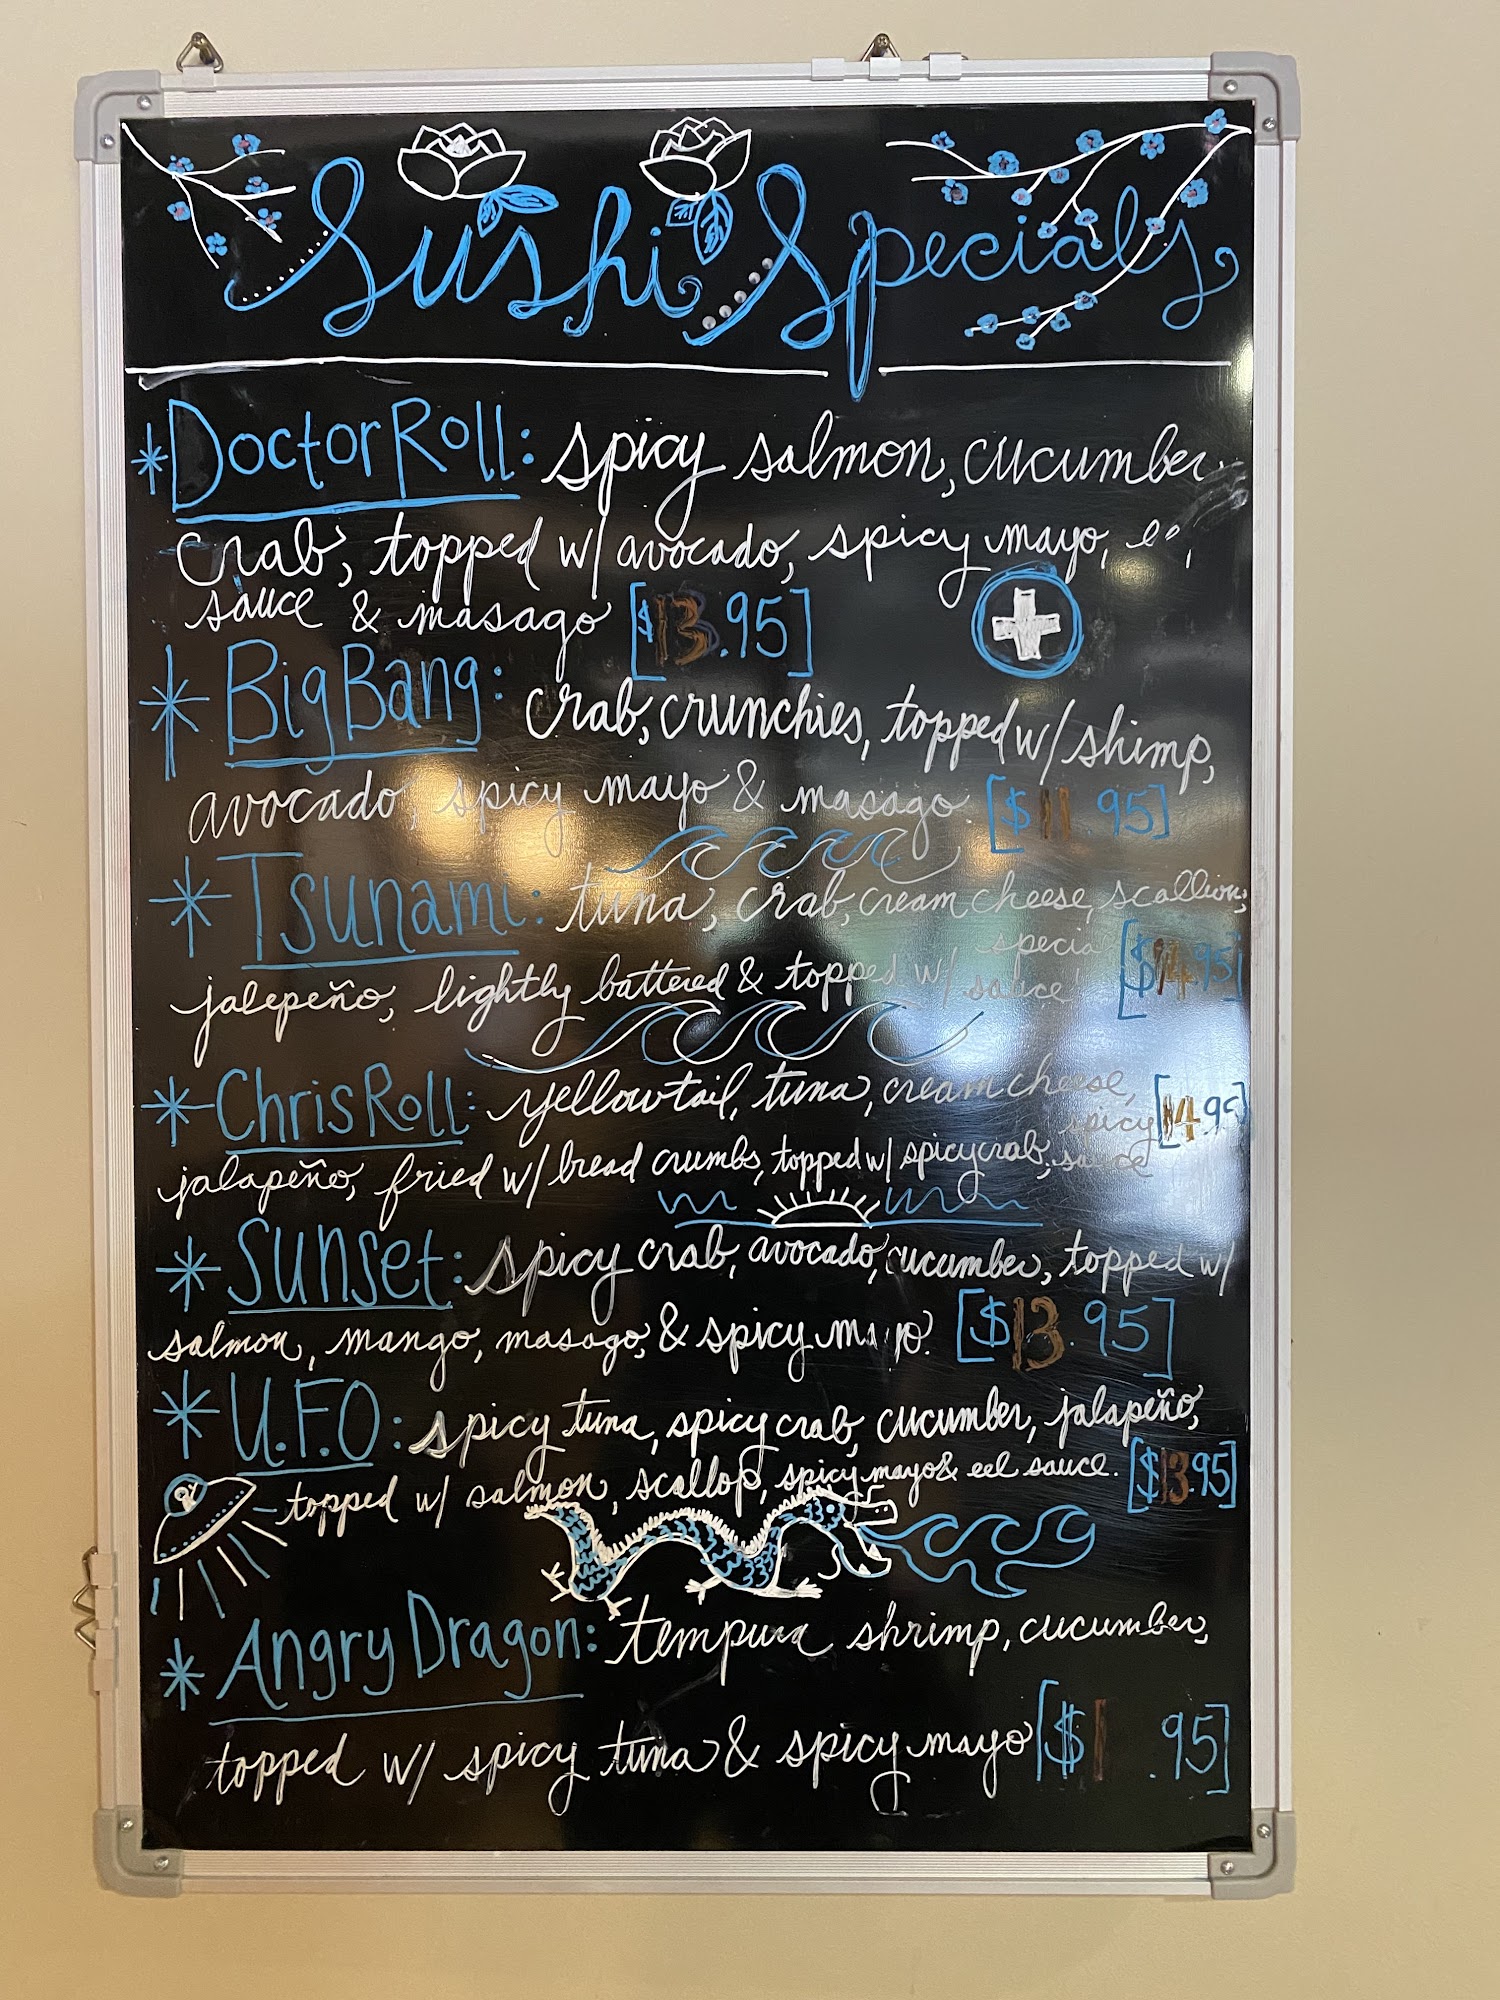 Sushi Specials
*Doctor Roll: spicy salmon, cucumber
crab, topped w/ avocado, spicy mayo,
sauce & masago [$13.95]
*Big Bang: crab, crunchies, topped w/ shimp,
avocado, spicy mayo & masago [$11 95]
*Tsunami: tuna, crab, cream cheese, scallion,
jalepeño, lightly battered & topped w/ special sauce [$14.95]
*Chris Roll: yellowtail, tuna, cream cheese,
jalapeño, fried w/ bread crumbs, topped w/ spicy crab, spicy sauce [14.95]
*Sunset: spicy crab, avocado, cucumber, topped w/
salmon, mango, masago, & spicy mayo. [$13.95]
*U.F.O: spicy tuna, spicy crab, cucumber, jalapeño,
topped w/ salmon, scallop, spicy mayo & eel sauce. [$13.95]
*Angry Dragon: tempura shrimp, cucumber,
topped w/ spicy tuna & spicy mayo [$1 .95]